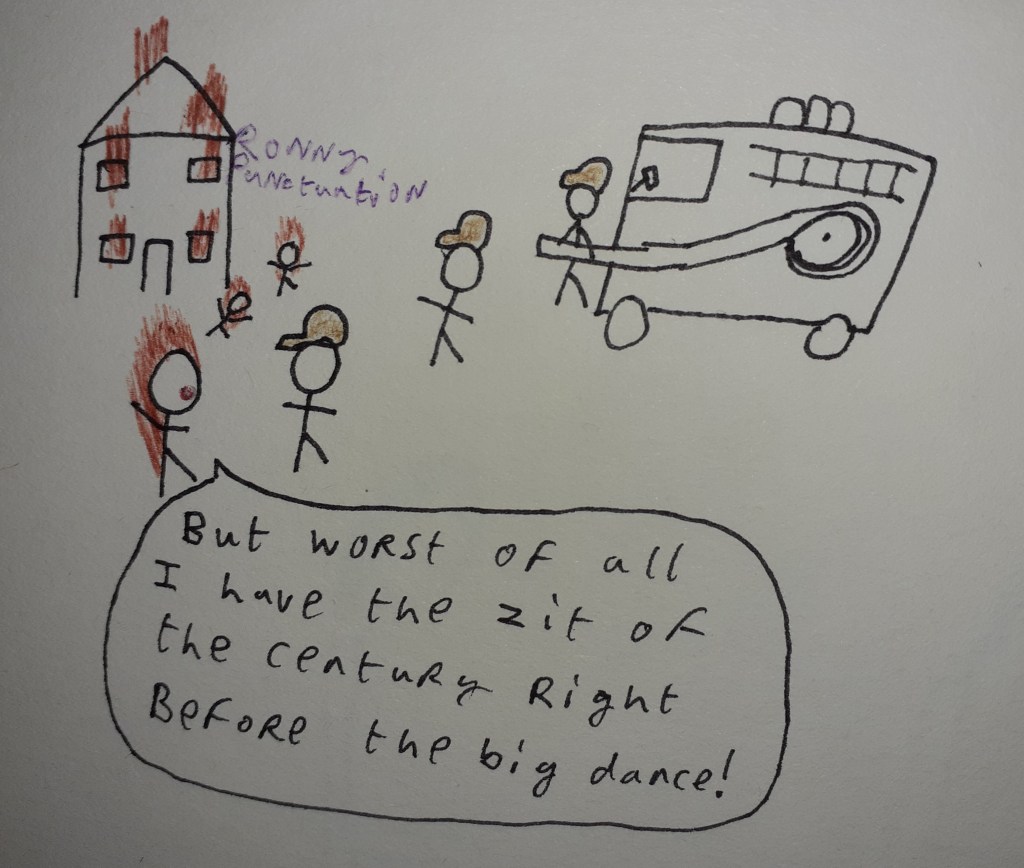 RONNY
Punctuation
But worst of all
I have the zit of
the century Right
Before the big dance!